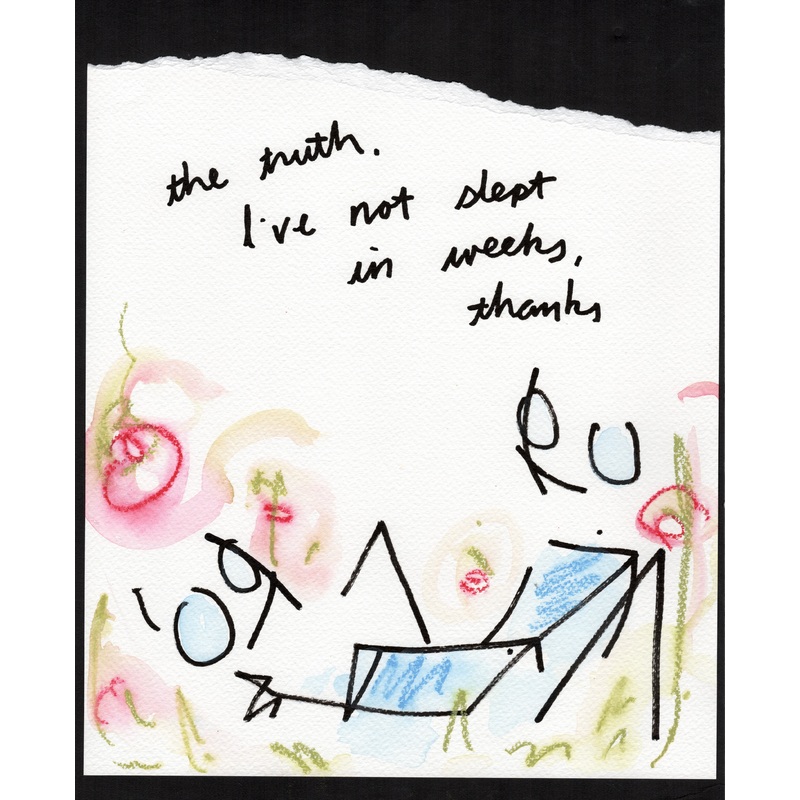 the truth.
I've not slept
in weeks,
thanks